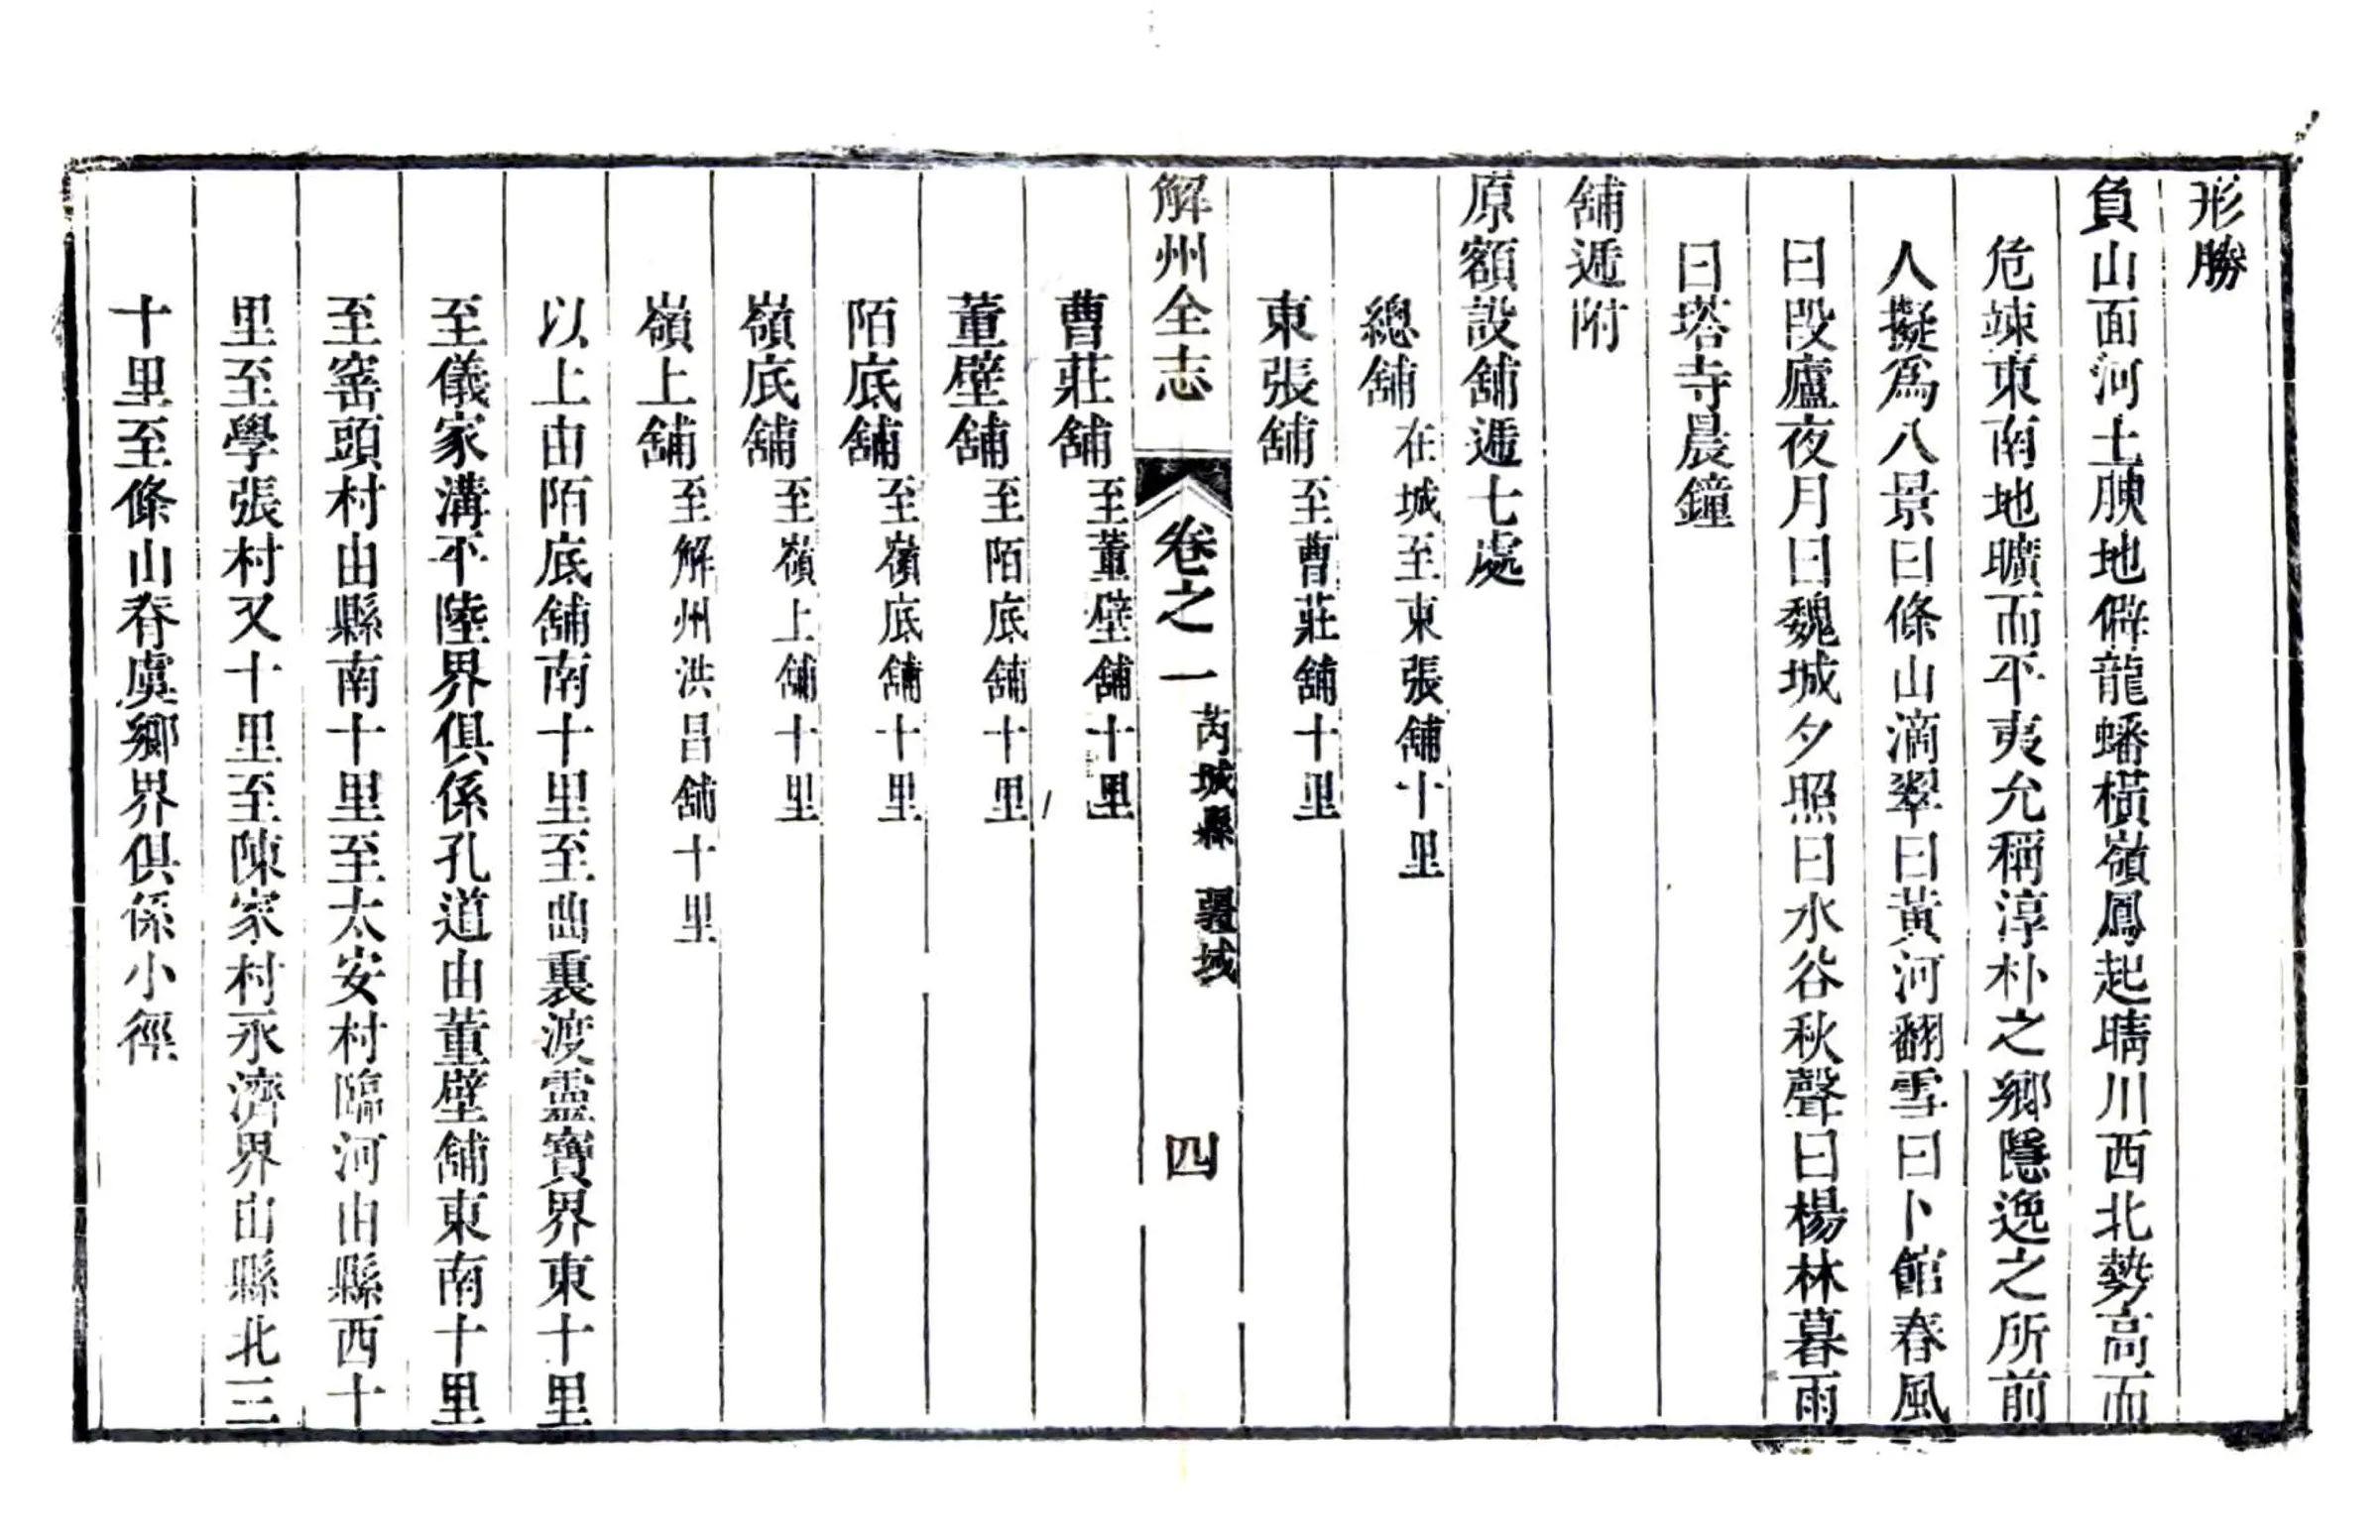 形勝
負山面河土腴地僻龍蟠橫嶺鳳起晴川西北勢高而
危竦東南地曠而平夷允稱淳朴之鄉隱逸之所前
人擬爲八景曰條山滴翠曰黃河翻雪曰卜館春風
曰段廬夜月曰魏城夕照曰水谷秋聲曰楊林暮雨
曰塔寺晨鐘
舖遞附
原額設舖遞七處
總舖在城至東張舖十里
東張舖至曹莊舖十里
解州全志 卷之一 芮城縣 疆域 四
曹莊舖至董壁舖十里
董壁舖至陌底舖十里
陌底舖至嶺底舖十里
嶺底舖至嶺上舖十里
嶺上舖至解州洪昌舖十里
以上由陌底舖南十里至曲裏渡靈寶界東十里
至儀家溝平陸界俱係孔道由董壁舖東南十里
至窰頭村由縣南十里至太安村臨河由縣西十
里至學張村又十里至陳家村永濟界由縣北三
十里至條山脊虞鄉界俱係小徑